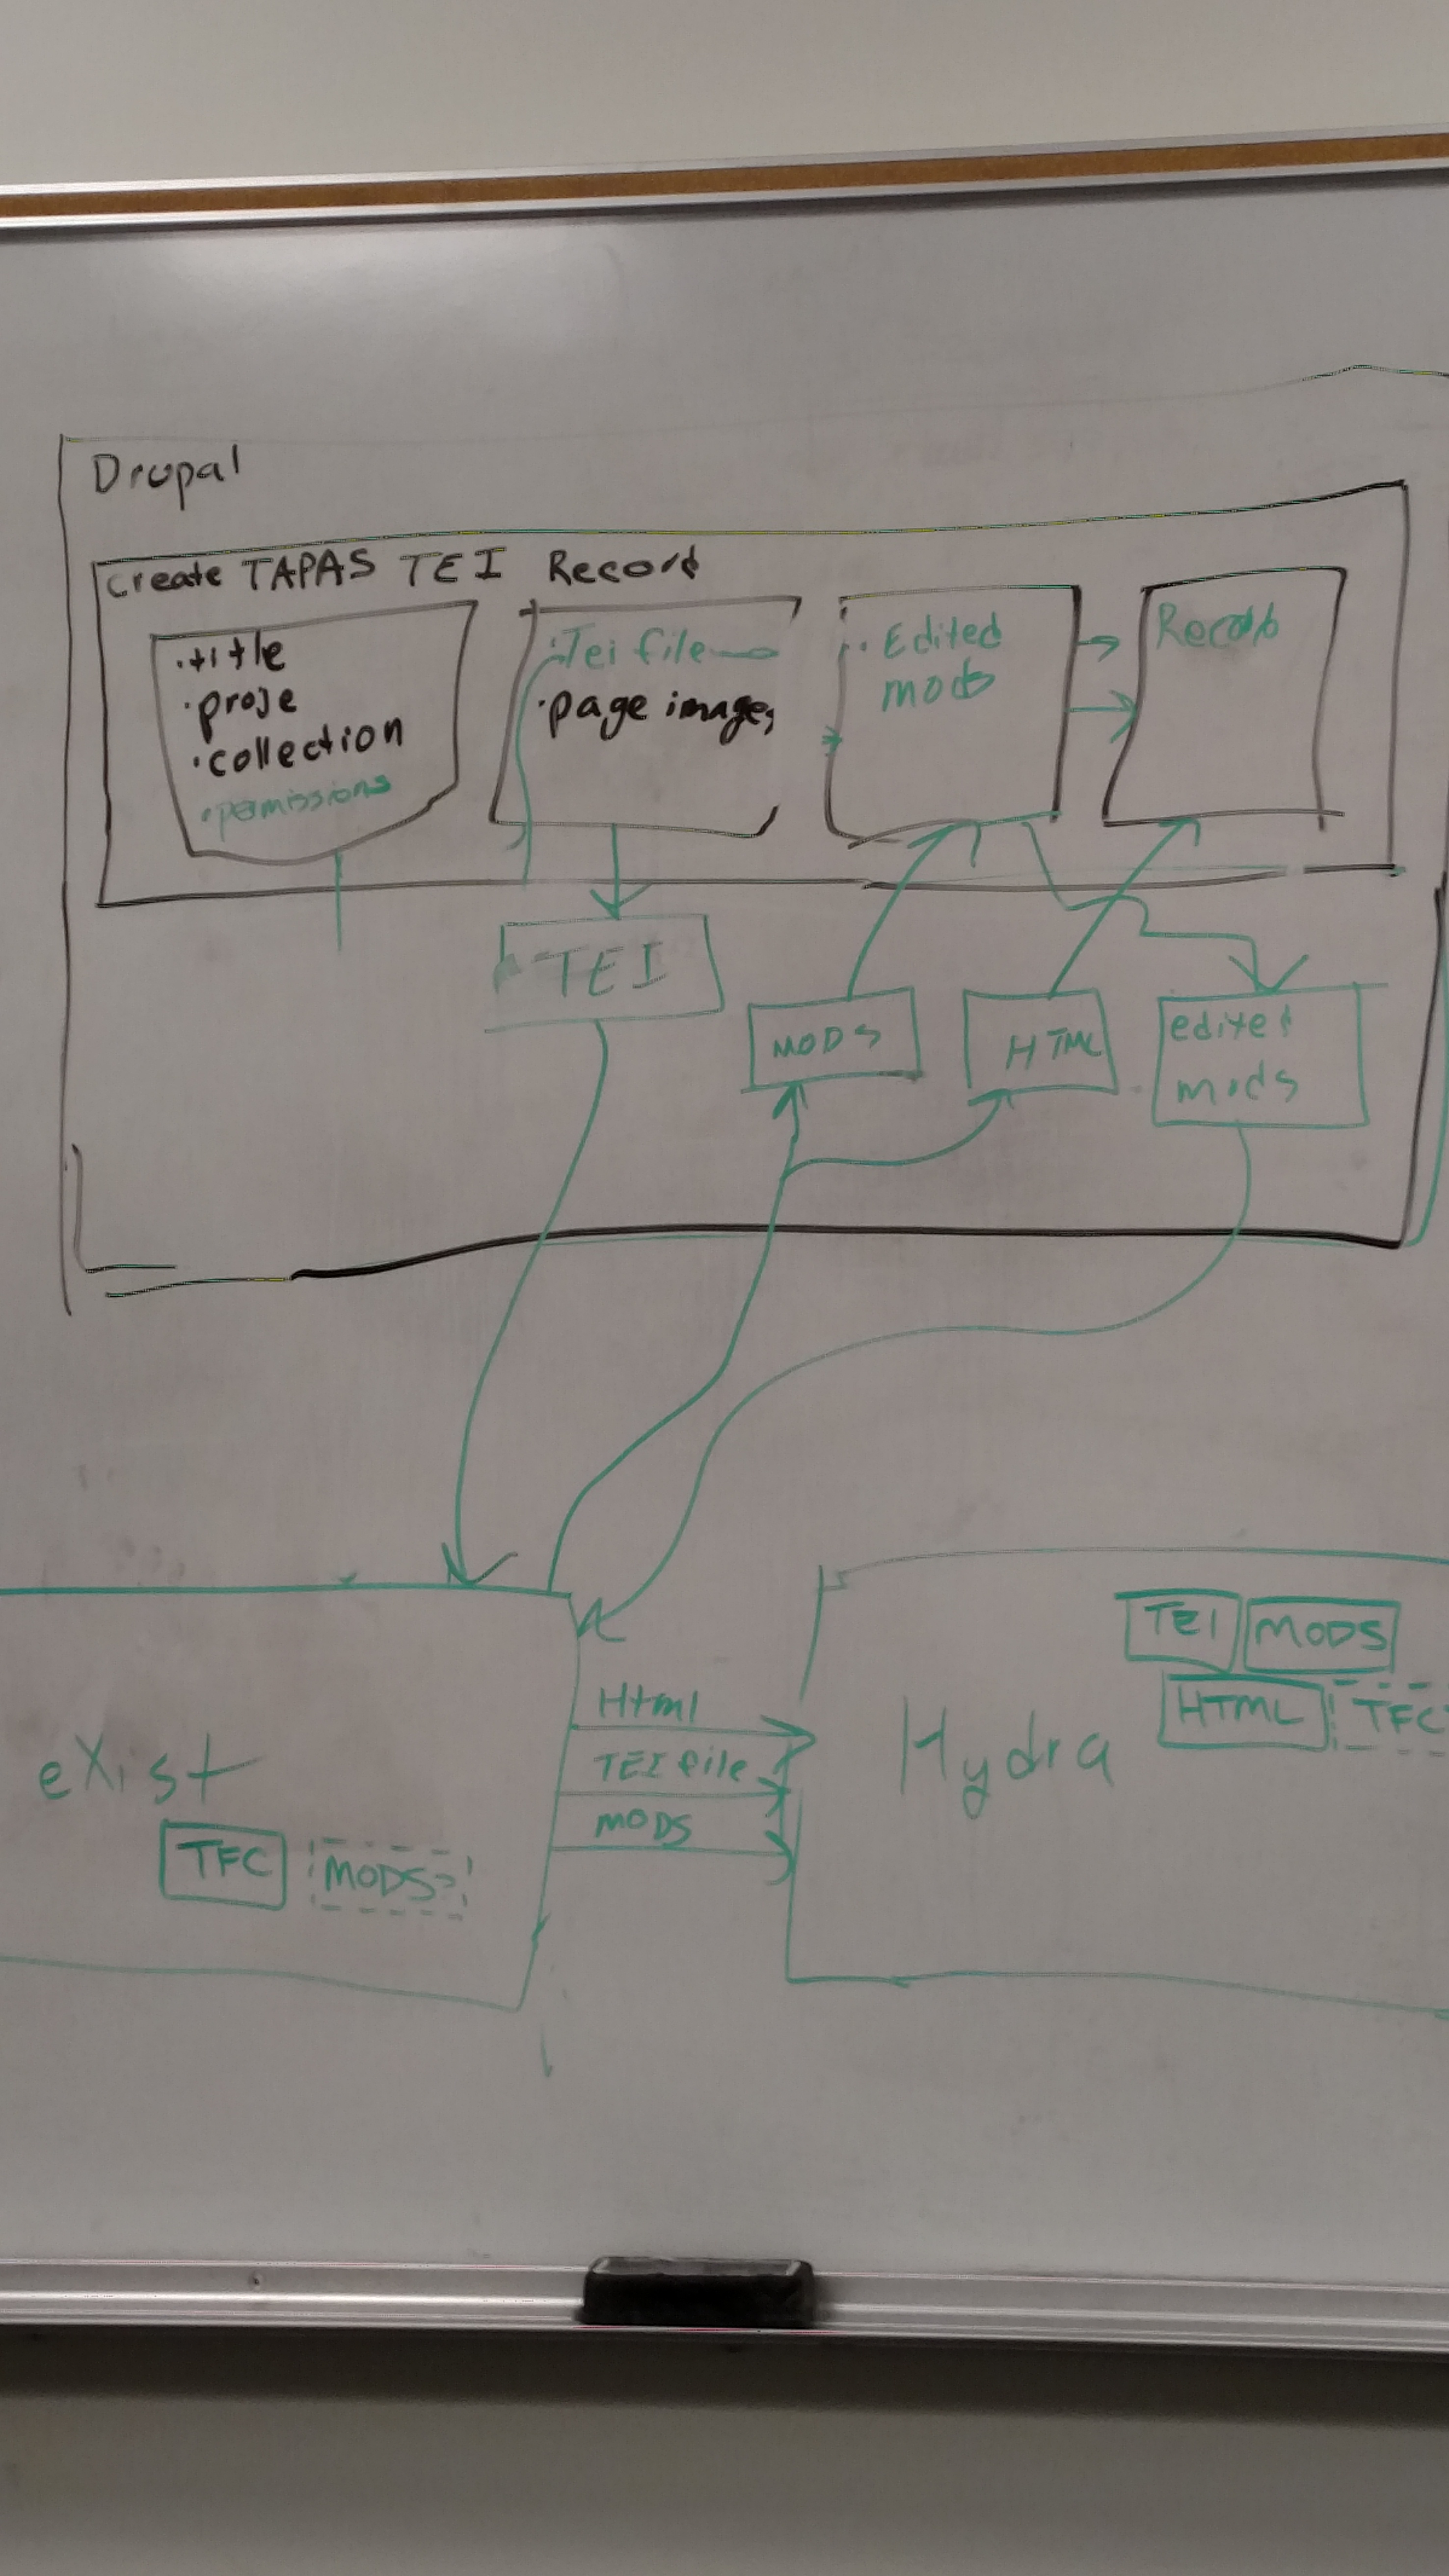 Drupal
Create TAPAS TEI Record
·title
·proje
·collection
·permissions
·Tei file
·page images
·Edited
mods
Record
TEI
MODS
HTML
edited
mods
eXist
TFC
MODS
Html
TEI file
MODS
Hydra
TEI
MODS
HTML
TFC